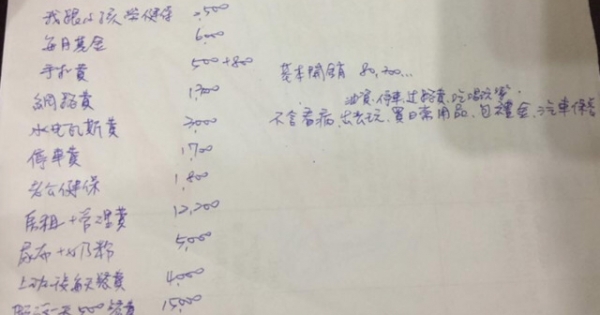 我跟小孩勞健保 2,500
每月基金 6,000
手機費 500+800
網路費 1,200
水电瓦斯費 2,000
停車費 1,700
老公健保 1,800
房租+管理費 12,200
尿布+奶粉 5,000
每天餐費 4,000
一天500餐費 15,000
基本開銷 80,200...
油資、停車、过路費、吃喝玩樂、
不含看病、出去玩、買日常用品、包禮金、汽車保養